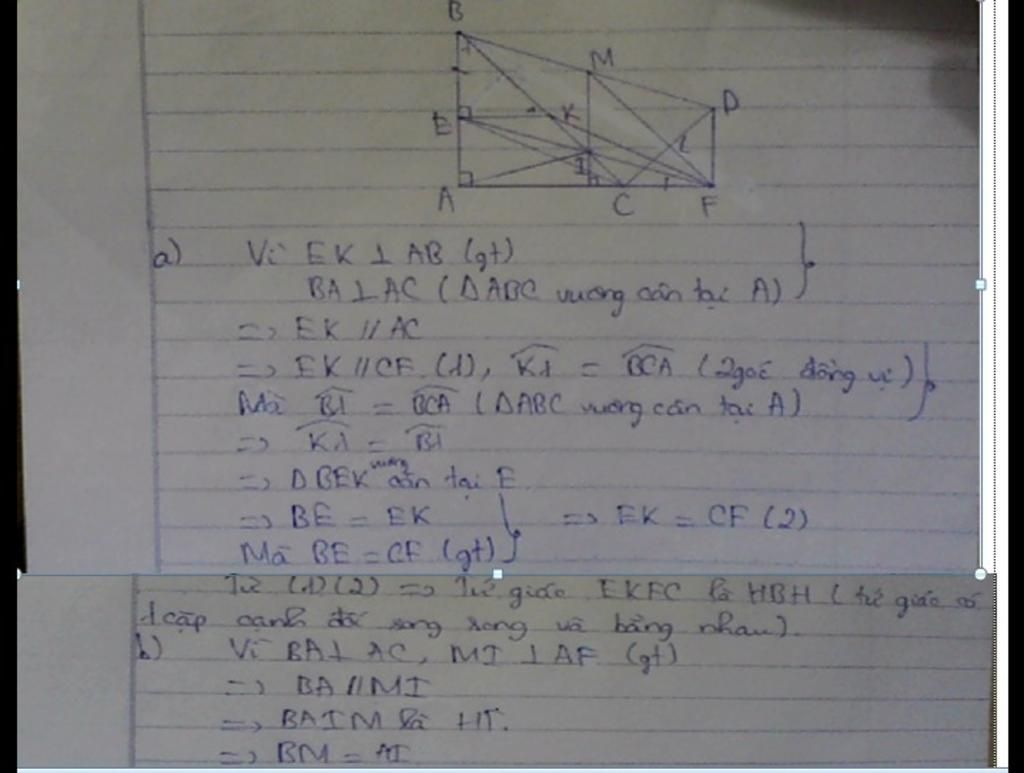 B
M
D
E
K
I
A
C
F
a) Vì EK ⊥ AB (gt)
BA ⊥ AC (ΔABC vuông cân tại A)
=> EK // AC
=> EK // CF (1), K1 = BCA (2 góc đồng vị)
Mà B1 = BCA (ΔABC vuông cân tại A)
=> K1 = B1
=> ΔBEK vuông cân tại E
=> BE = EK => EK = CF (2)
Mà BE = CF (gt)
Từ (1) (2) => Tứ giác EKFC là HBH (tứ giác có
1 cặp cạnh đối song song và bằng nhau).
b) Vì BA ⊥ AC, MI ⊥ AF (gt)
=> BA // MI
=> BAIM là HT.
=> BM = AI